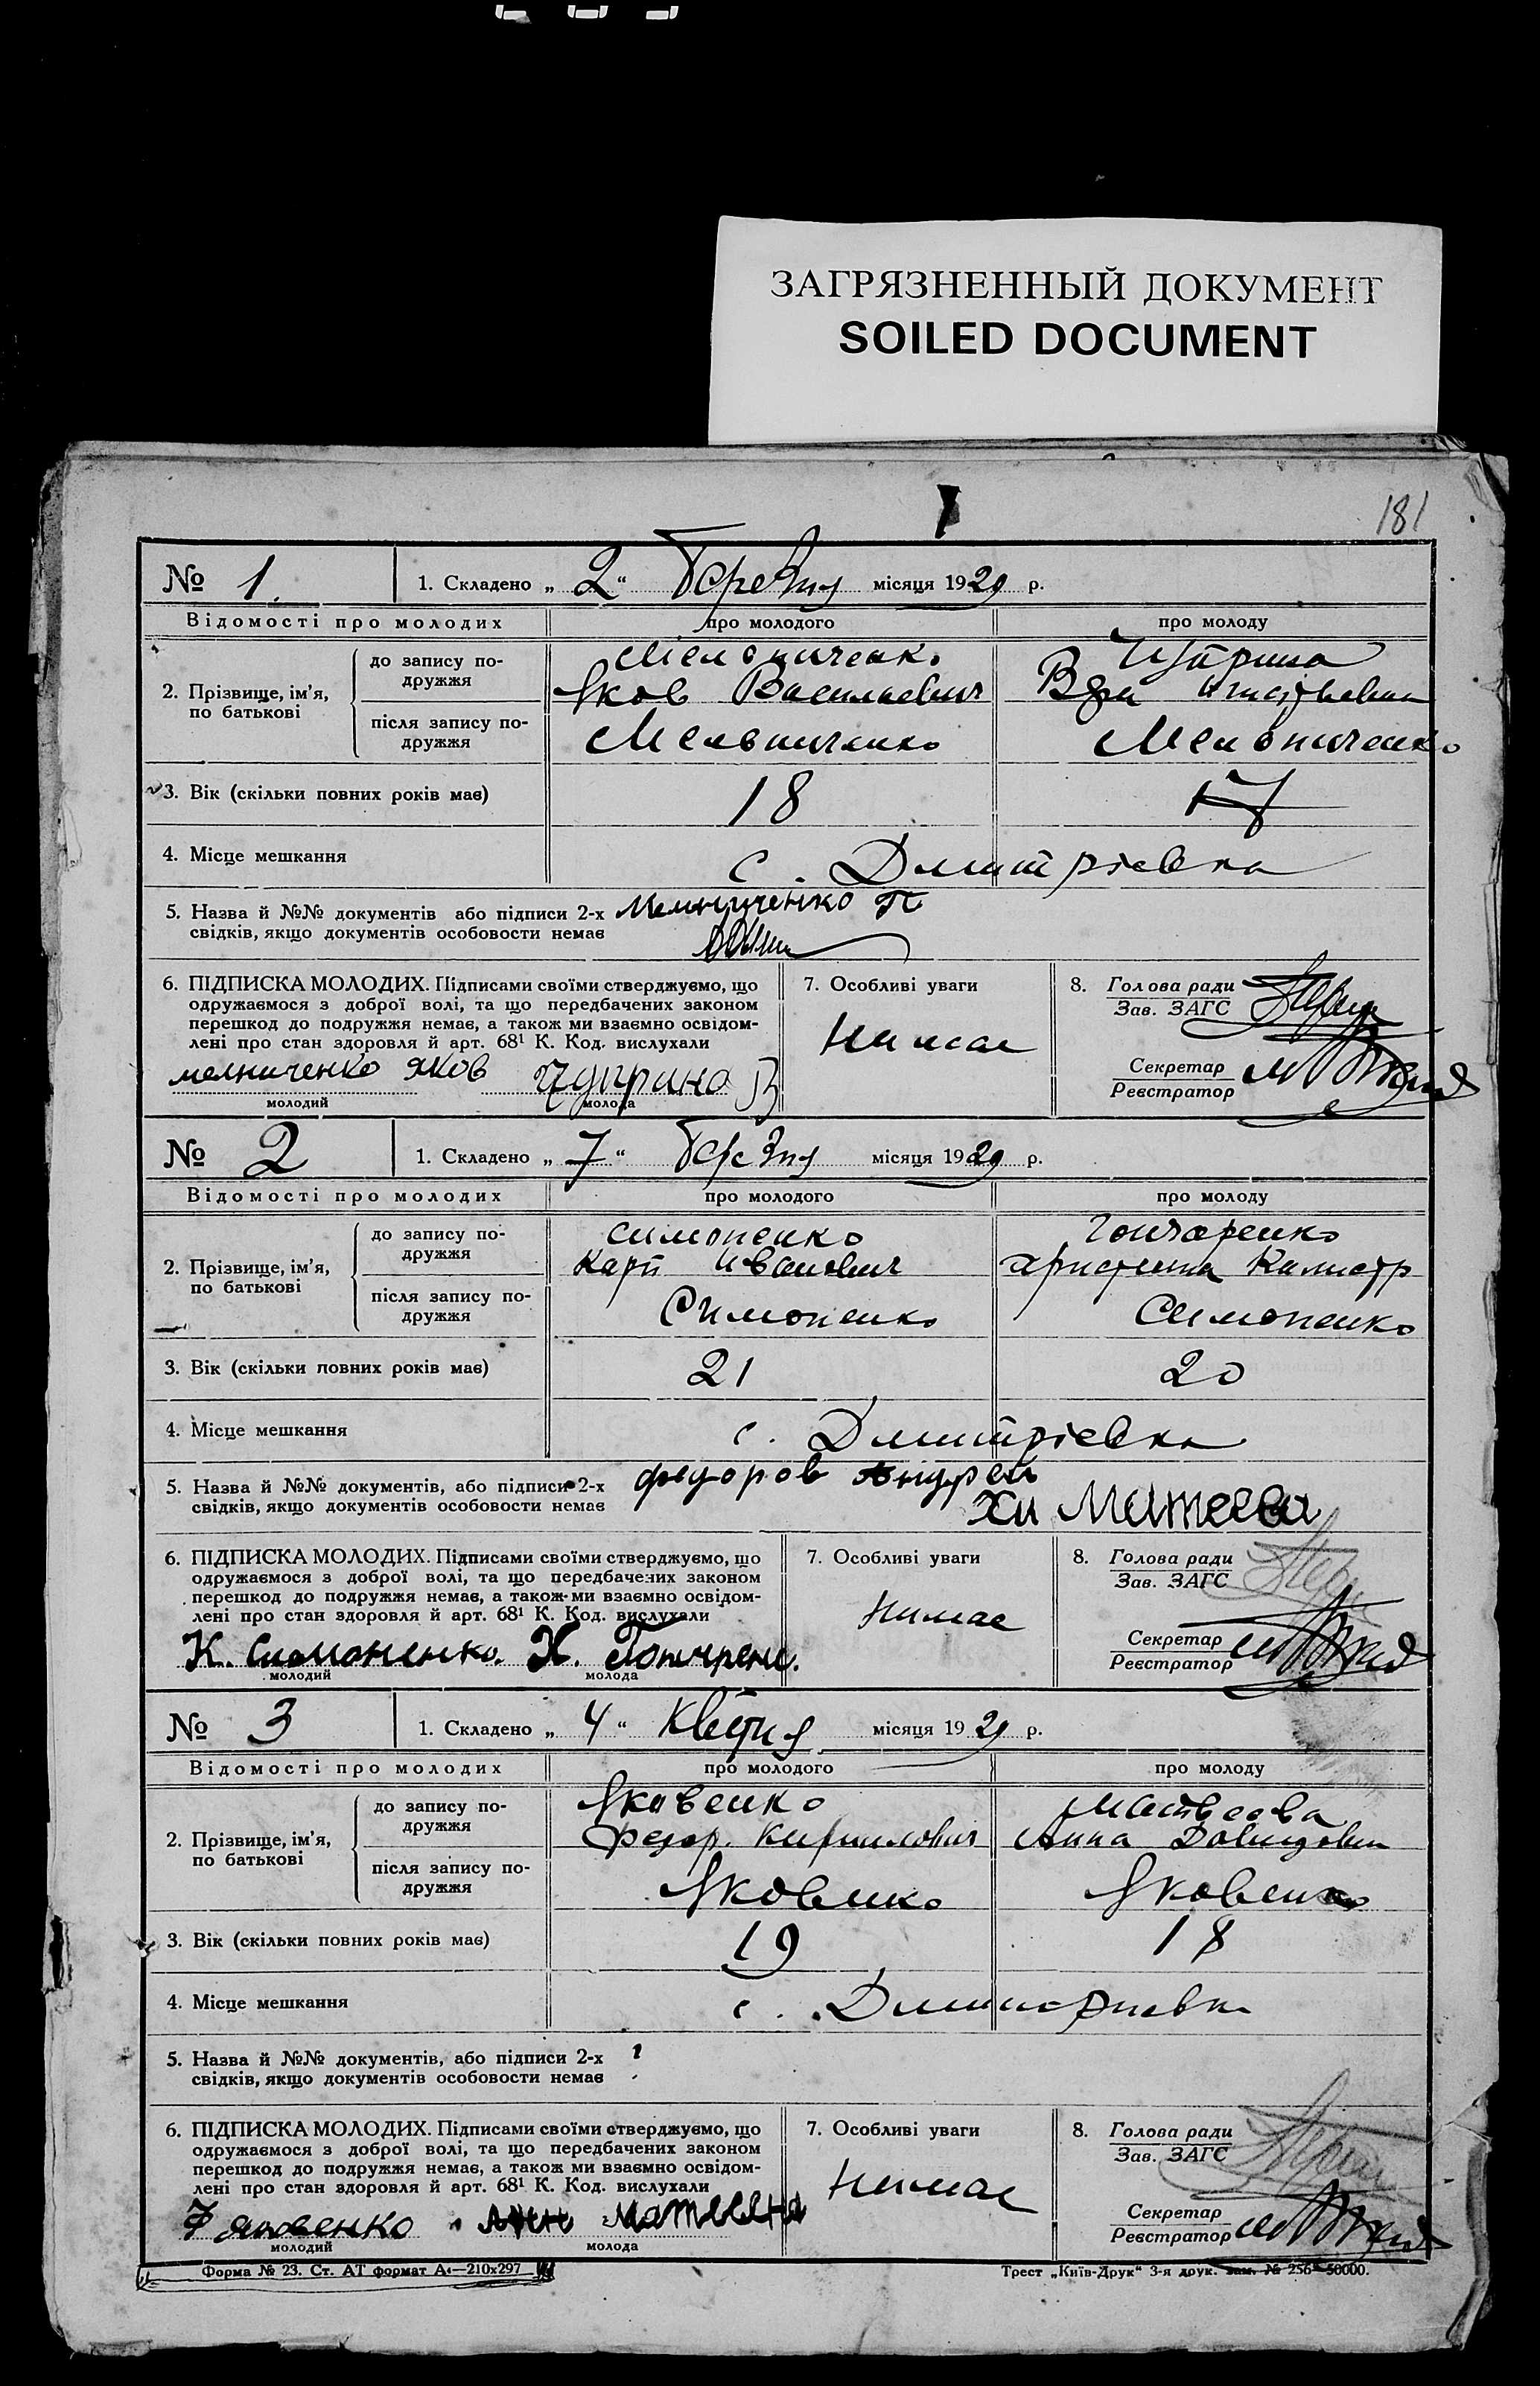 ЗАГРЯЗНЕННЫЙ ДОКУМЕНТ
SOILED DOCUMENT
181
№ 1. 1. Складено „ 2 “ Березня місяця 1929 р.
Відомості про молодих про молодого про молоду
2. Прізвище, ім’я, по батькові
до запису по-
дружжя
Мельниченко
Яков Васильевич
після запису по-
дружжя
Мельниченко Мельниченко
3. Вік (скільки повних років має) 18 17
4. Місце мешкання с. Дмитрієвка
5. Назва й №№ документів або підписи 2-х
свідків, якщо документів особовости немає
Мелниченко П
6. ПІДПИСКА МОЛОДИХ. Підписами своїми стверджуємо, що
одружаємося з доброї волі, та що передбачених законом
перешкод до подружжя немає, а також ми взаємно освідом-
лені про стан здоровля й арт. 68¹ К. Код. вислухали
мелниченко яков
молодий молода
7. Особливі уваги
Нимае
8. Голова ради
Зав. ЗАГС
Секретар
Реєстратор
№ 2 1. Складено „ 7 “ Березня місяця 1929 р.
Відомості про молодих про молодого про молоду
2. Прізвище, ім’я,
по батькові
до запису по-
дружжя
Симоненко Гончаренко
Карп Иванович Христина Калистр
після запису по-
дружжя
Симоненко Симоненко
3. Вік (скільки повних років має) 21 20
4. Місце мешкання с. Дмитрієвка
5. Назва й №№ документів, або підписи 2-х
свідків, якщо документів особовости немає
федоров Андрей
6. ПІДПИСКА МОЛОДИХ. Підписами своїми стверджуємо, що
одружаємося з доброї волі, та що передбачених законом
перешкод до подружжя немає, а також ми взаємно освідом-
лені про стан здоровля й арт. 68¹ К. Код. вислухали
К. Симоненко. Х.
молодий молода
7. Особливі уваги
Нимае
8. Голова ради
Зав. ЗАГС
Секретар
Реєстратор
№ 3 1. Складено „ 4 “ Квітня місяця 1929 р.
Відомості про молодих про молодого про молоду
2. Прізвище, ім’я,
по батькові
до запису по-
дружжя
Яковенко Матвеева
Федор. Кирилович Анна Давидовн
після запису по-
дружжя
Яковенко Яковенко
3. Вік (скільки повних років має) 19 18
4. Місце мешкання с. Дмитриевка
5. Назва й №№ документів, або підписи 2-х
свідків, якщо документів особовости немає
6. ПІДПИСКА МОЛОДИХ. Підписами своїми стверджуємо, що
одружаємося з доброї волі, та що передбачених законом
перешкод до подружжя немає, а також ми взаємно освідом-
лені про стан здоровля й арт. 68¹ К. Код. вислухали
Ф яковенко
молодий молода
7. Особливі уваги
Нимае
8. Голова ради
Зав. ЗАГС
Секретар
Реєстратор
Форма № 23. Ст. АТ формат А₄—210х297
Трест „Київ-Друк“ 3-я друк. зам. № 256—50000.